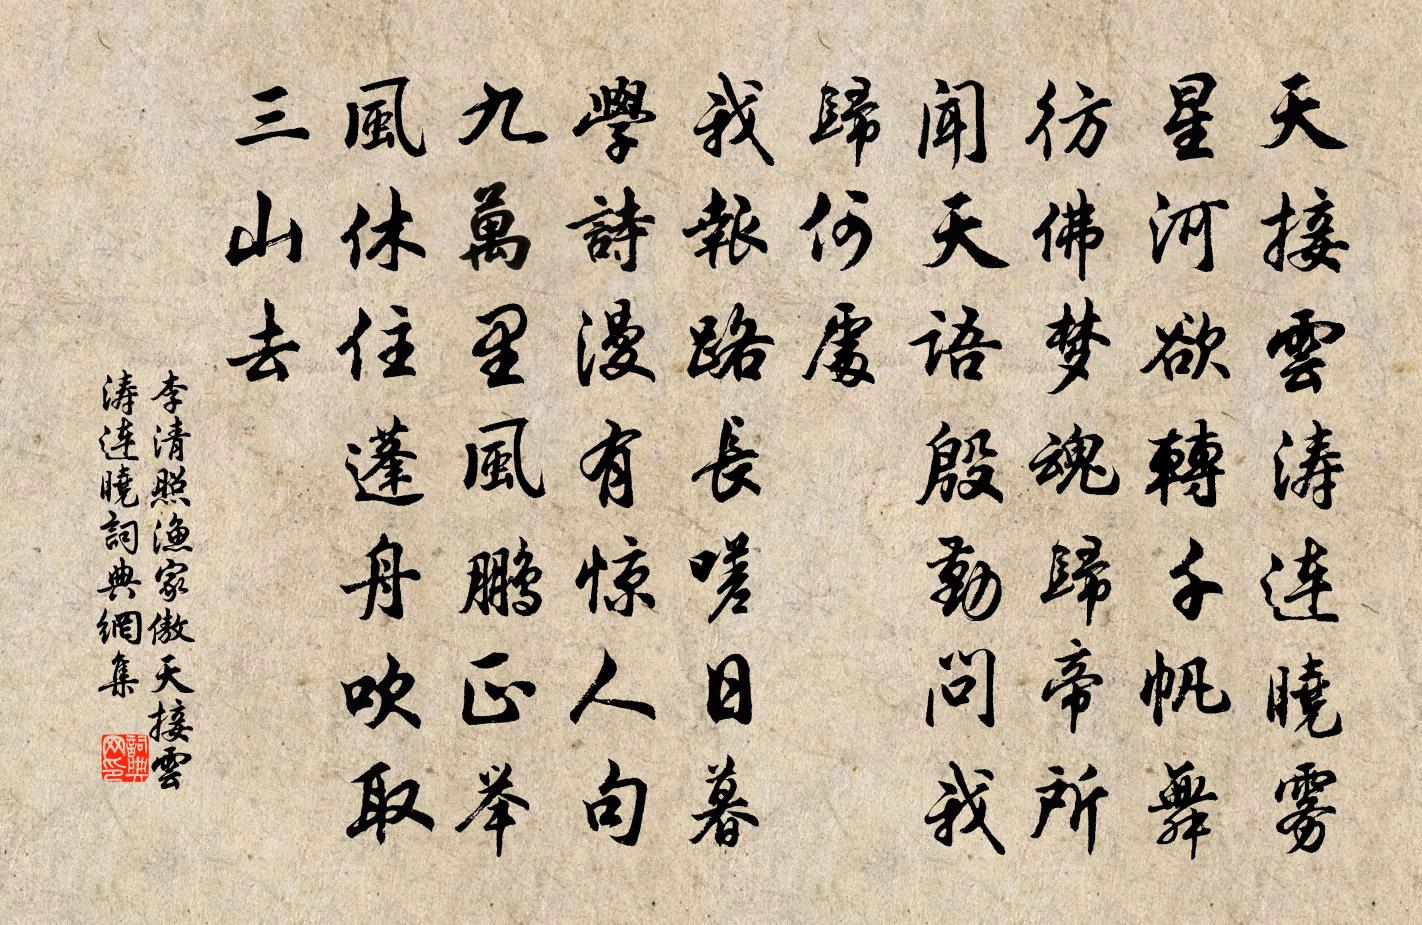 天接雲涛連曉雾
星河欲轉千帆舞
彷佛梦魂歸帝所
闻天語殷勤問我
歸何處
我報路長嗟日暮
學詩漫有惊人句
九萬里風鵬正举
風休住蓬舟吹取
三山去
李清照漁家傲天接雲
涛連曉詞典網集
詞典
网印